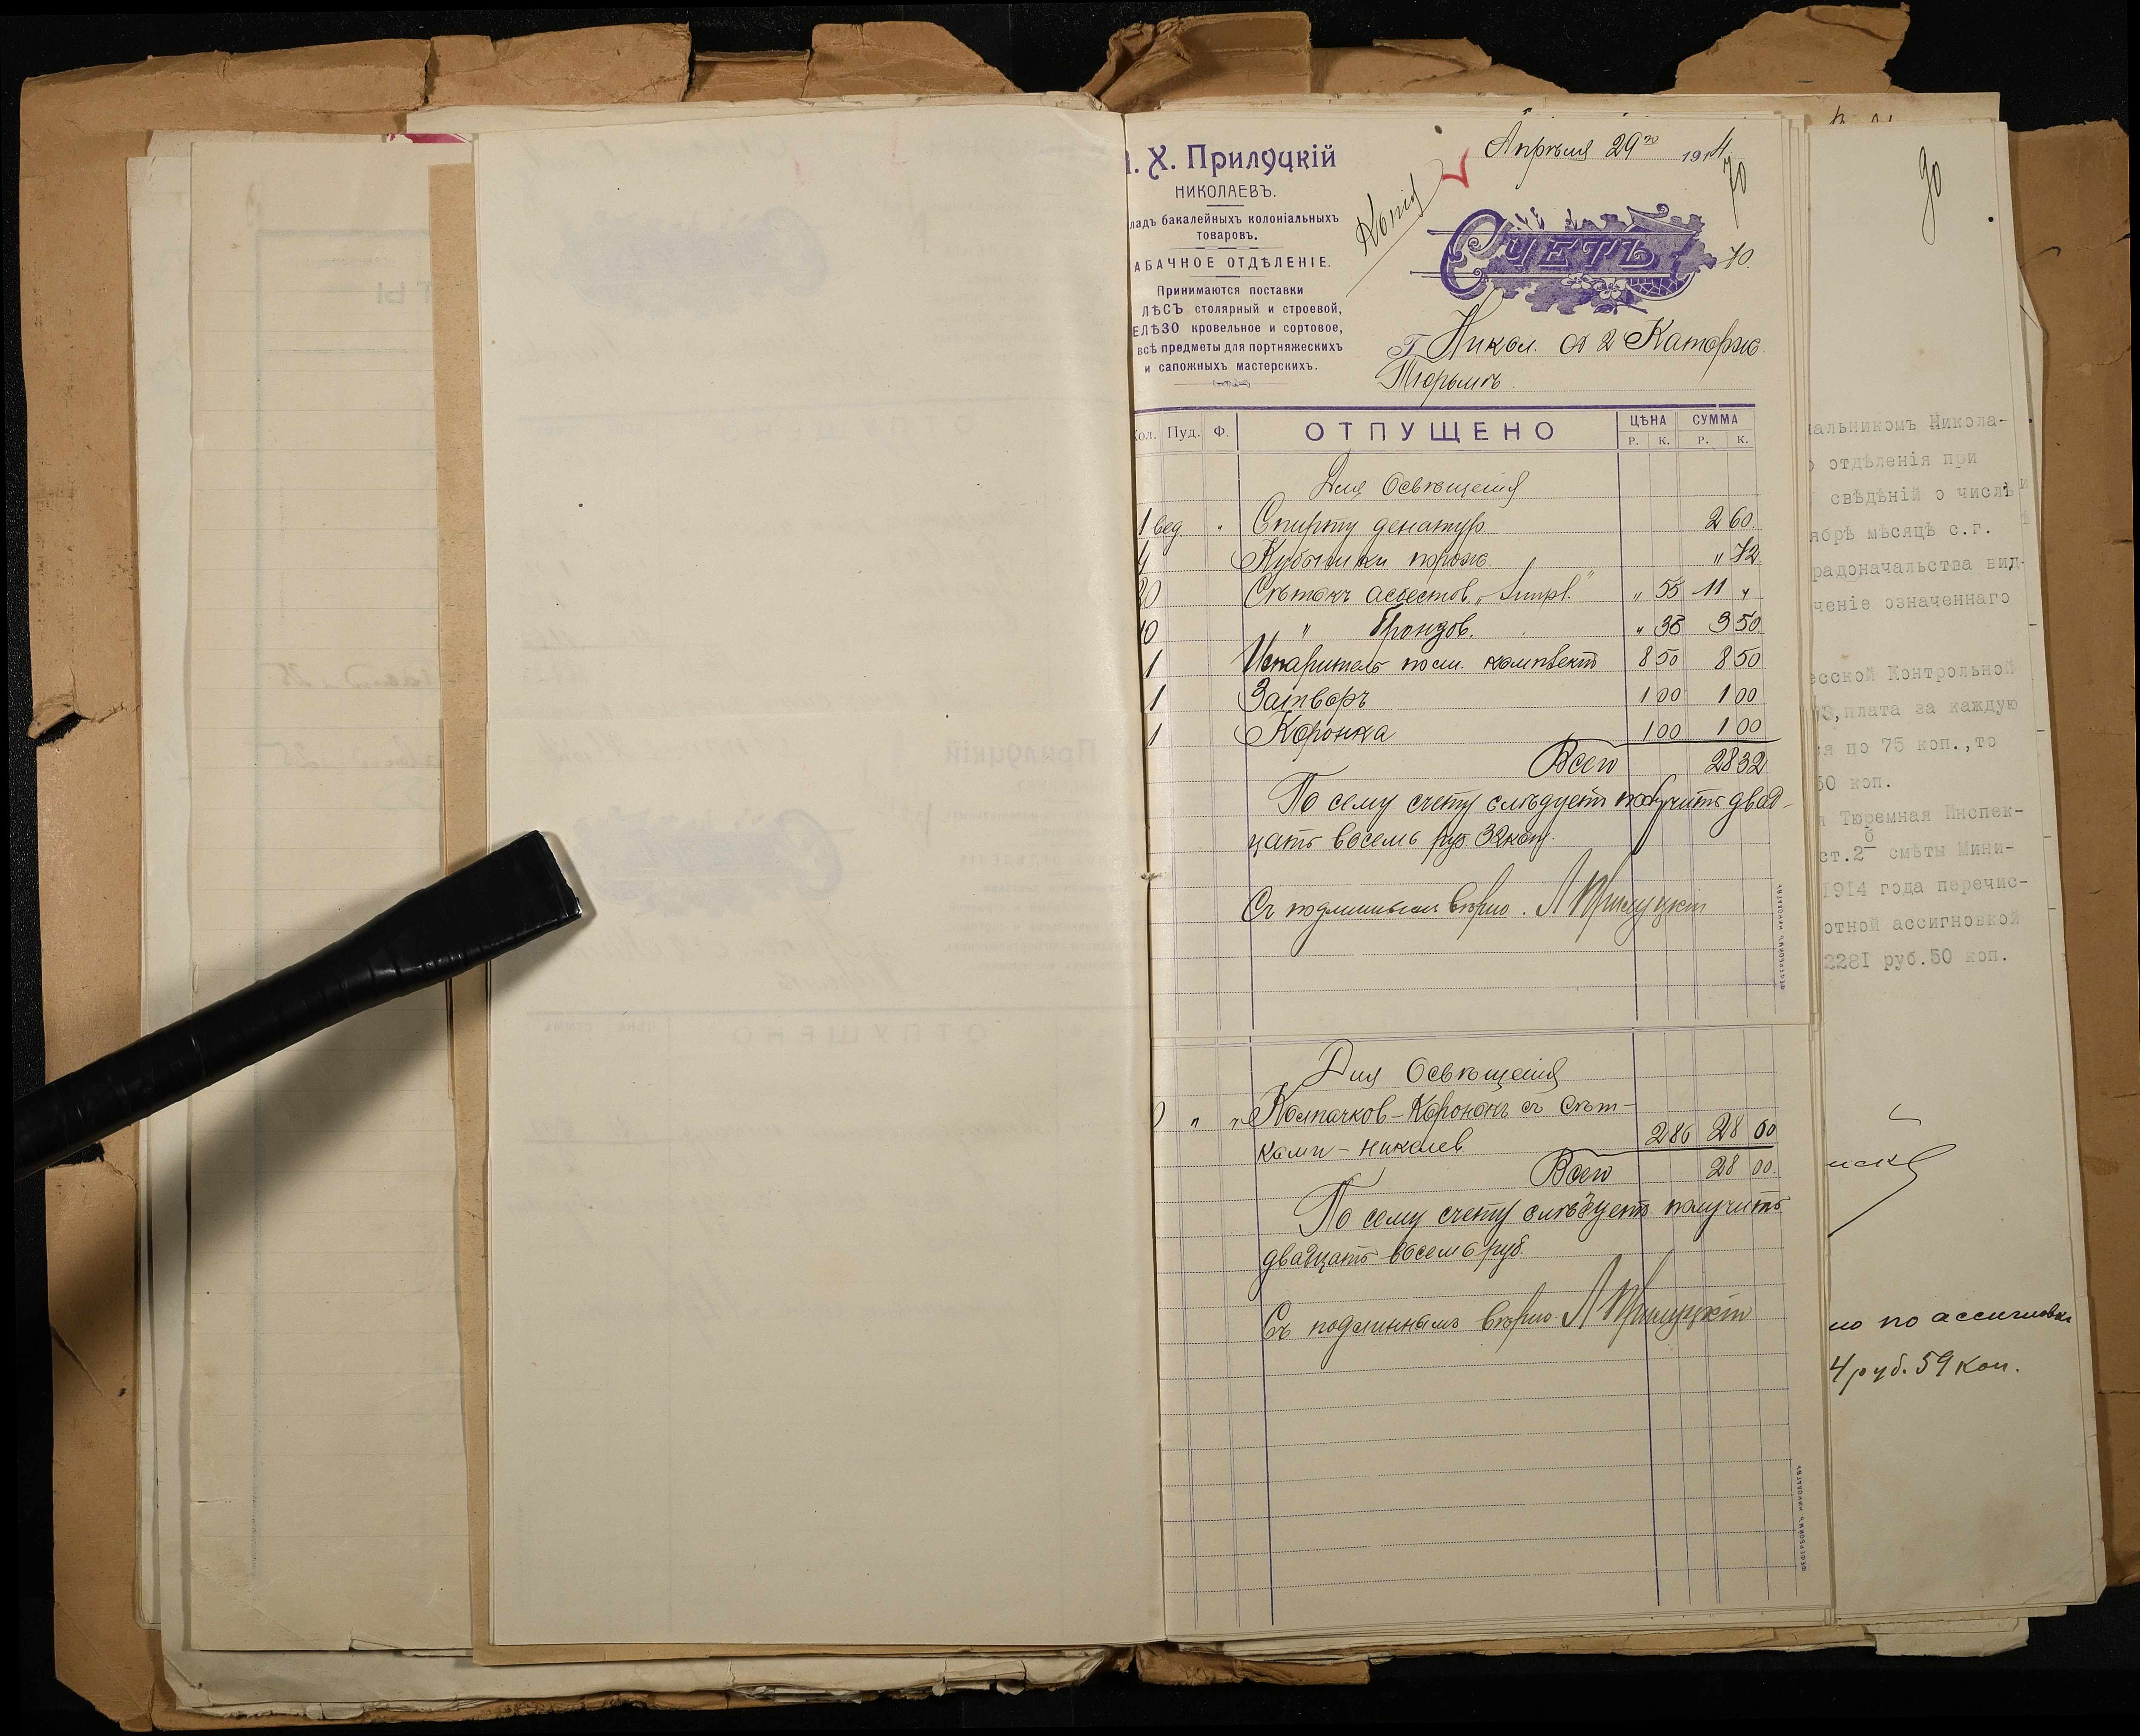 Апрѣля 29го 1914
. Х. Прилуцкій
НИКОЛАЕВЪ.
ладъ бакалейныхъ колоніальныхъ
товаровъ.
АБАЧНОЕ ОТДѢЛЕНІЕ.
Принимаются поставки
ЛѢСЪ столярный и строевой,
ЕЛѢЗО кровельное и сортовое,
всѣ предметы для портняжескихъ
и сапожныхъ мастерскихъ.
Копія
70
СЧЕТЪ
70.
Г. Никол. 2 Каторжо
Тюрьмѣ.
Кол. Пуд. Ф. ОТПУЩЕНО ЦѢНА СУММА
Р. К. Р. К.
Для Освѣщенія
1 вед. " Спирту денатур. 2 60.
4 Кубышки порож " 72
20 Сѣтокъ асбестов. " 55 11 "
10 " Грондов. " 35 3 50.
1 Испаритель полн. комплект 8 50 8 50
1 Затворъ 1 00 1 00
1 Коронка 1 00 1 00
Всего 28 32
По сему счету слѣдуетъ получить двад-
цать восемь руб 32 коп.
Съ подлиннымъ вѣрно. Л Прилуцкій
Для Освѣщенія
0 " " Колпачков-Коронокъ съ Сѣт-
ками - никелев 2 80 28 00
Всего 28 00.
По сему счету слѣдуетъ получить
двадцать восемь руб.
Съ подлиннымъ вѣрно. Л Прилуцкій
90
альникомъ Никола-
отдѣленія при
свѣдѣній о числѣ
ябрѣ мѣсяцѣ с.г.
радоначальства вид-
ченіе означеннаго
есской Контрольной
3, плата за каждую
я по 75 коп., то
50 коп.
Тюремная Инспек-
ст.2 б смѣты Мини-
1914 года перечис-
отной ассигновкой
2281 руб.50 коп.
но по ассигновкѣ
4 руб. 59 коп.